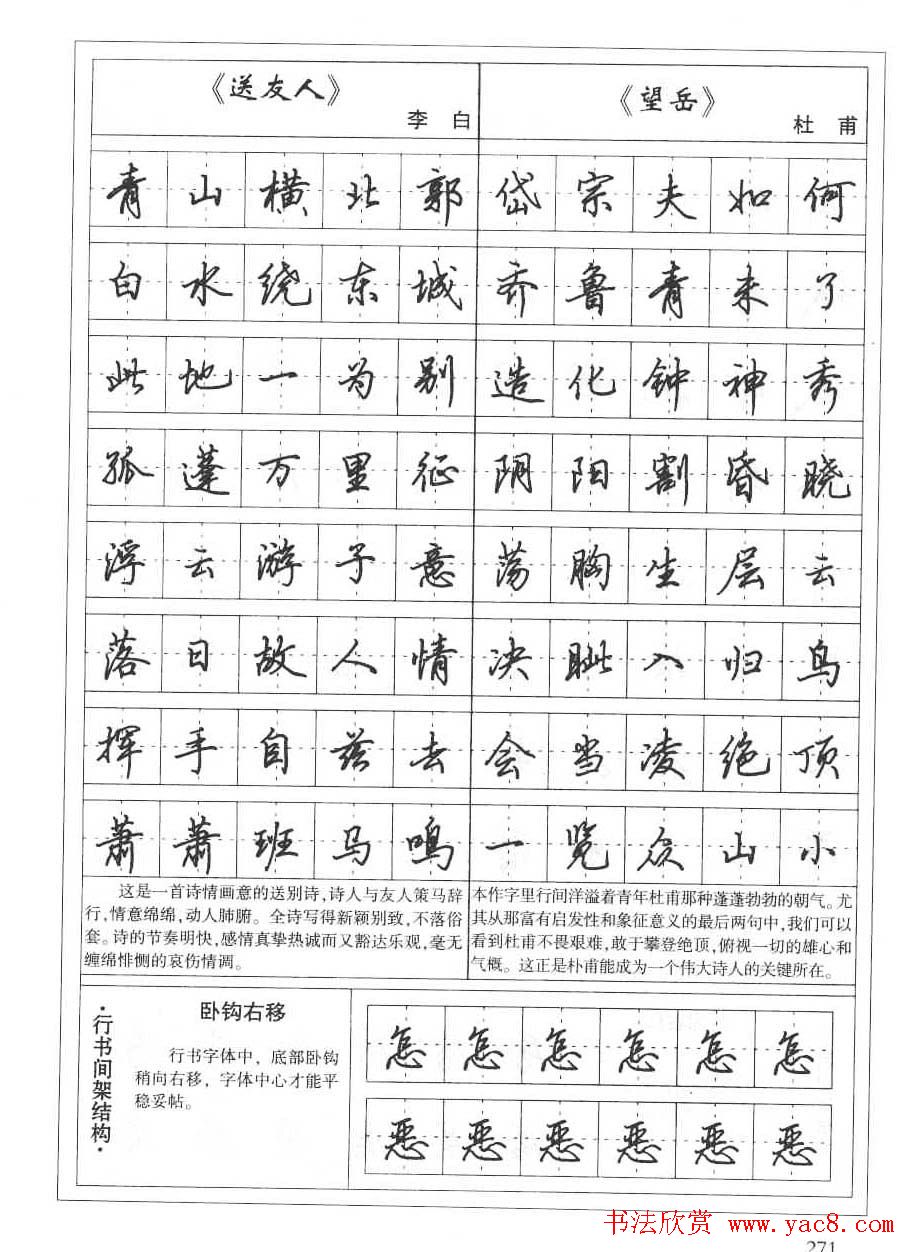 《送友人》
李 白
青山横北郭
白水绕东城
此地一为别
孤蓬万里征
浮云游子意
落日故人情
挥手自兹去
萧萧班马鸣
这是一首诗情画意的送别诗,诗人与友人策马辞
行,情意绵绵,动人肺腑。全诗写得新颖别致,不落俗
套。诗的节奏明快,感情真挚热诚而又豁达乐观,毫无
缠绵悱恻的哀伤情调。
《望岳》
杜 甫
岱宗夫如何
齐鲁青未了
造化钟神秀
阴阳割昏晓
荡胸生层云
决眦入归鸟
会当凌绝顶
一览众山小
本作字里行间洋溢着青年杜甫那种蓬蓬勃勃的朝气。尤
其从那富有启发性和象征意义的最后两句中,我们可以
看到杜甫不畏艰难,敢于攀登绝顶,俯视一切的雄心和
气概。这正是朴甫能成为一个伟大诗人的关键所在。
·行书间架结构·
卧钩右移
行书字体中，底部卧钩
稍向右移，字体中心才能平
稳妥帖。
怎怎怎怎怎怎
恶恶恶恶恶恶
书法欣赏 www.yac8.com
271